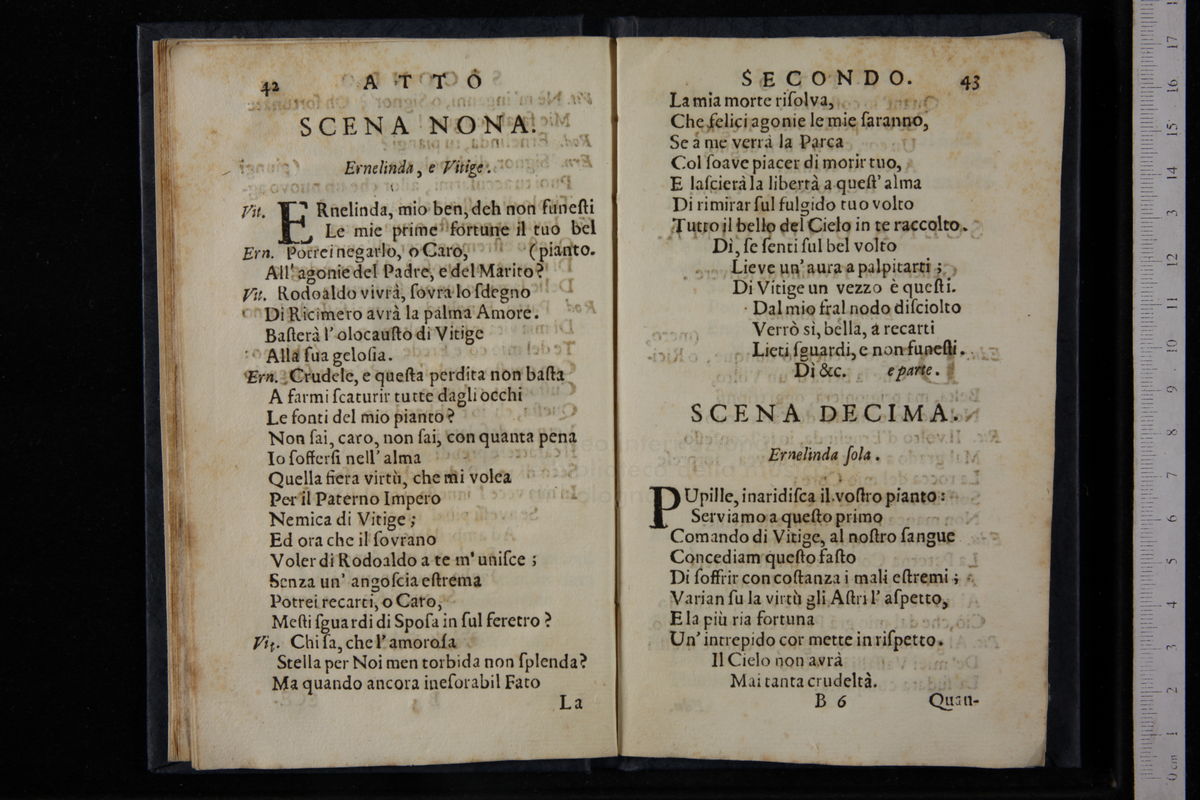 42 ATTO
SCENA NONA.
Ernelinda, e Vitige.
Vit. ERnelinda, mio ben, deh non funeſti
Le mie prime fortune il tuo bel
Ern. Potrei negarlo, o Caro, (pianto.
All' agonie del Padre, e del Marito?
Vit. Rodoaldo vivrà, ſovra lo ſdegno
Di Ricimero avrà la palma Amore.
Baſterà l' olocauſto di Vitige
Alla ſua geloſia.
Ern. Crudele, e queſta perdita non baſta
A farmi ſcaturir tutte dagli occhi
Le fonti del mio pianto?
Non ſai, caro, non ſai, con quanta pena
Io ſofferſi nell' alma
Quella fiera virtù, che mi volea
Per il Paterno Impero
Nemica di Vitige;
Ed ora che il ſovrano
Voler di Rodoaldo a te m' uniſce;
Senza un' angoſcia eſtrema
Potrei recarti, o Caro,
Meſti ſguardi di Spoſa in ſul feretro?
Vit. Chi ſa, che l' amoroſa
Stella per Noi men torbida non ſplenda?
Ma quando ancora ineſorabil Fato
La
SECONDO. 43
La mia morte riſolva,
Che felici agonie le mie ſaranno,
Se a me verrà la Parca
Col ſoave piacer di morir tuo,
E laſcierà la libertà a queſt' alma
Di rimirar ſul fulgido tuo volto
Tutto il bello del Cielo in te raccolto.
Dì, ſe ſenti ſul bel volto
Lieve un' aura a palpitarti;
Di Vitige un vezzo è queſti.
Dal mio fral nodo diſciolto
Verrò sì, bella, a recarti
Lieti ſguardi, e non funeſti.
Dì &c. e parte.
SCENA DECIMA.
Ernelinda ſola.
PUpille, inaridiſca il voſtro pianto:
Serviamo a queſto primo
Comando di Vitige, al noſtro ſangue
Concediam queſto faſto
Di ſoffrir con coſtanza i mali eſtremi;
Varian ſu la virtù gli Aſtri l' aſpetto,
E la più ria fortuna
Un' intrepido cor mette in riſpetto.
Il Cielo non avrà
Mai tanta crudeltà.
B 6 Quan-